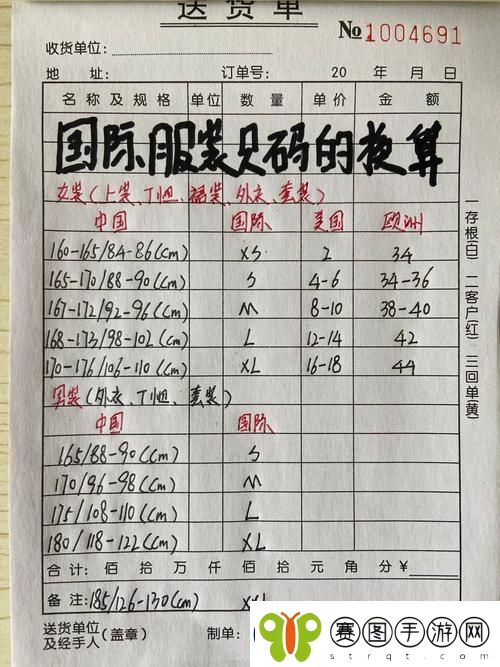 送货单
№1004691
收货单位:
地 址: 订单号: 20 年 月 日
名称及规格 单位 数量 单价 金额
国际服装尺码的换算
女装(上装、T恤、裙装、外衣、套装)
中国 国际 美国 欧洲
160-165/84-86(cm) XS 2 34
165-170/88-90(cm) S 4-6 34-36
167-172/92-96(cm) M 8-10 38-40
168-173/98-102(cm) L 12-14 42
170-176/106-110(cm) XL 16-18 44
男装(外衣、T恤、套装)
中国 国际
165/88-90(cm) S
170/96-98(cm) M
175/108-110(cm) L
180/118-122(cm) XL
合计: 佰 拾 万 仟 佰 拾 元 角 分 ¥
备注: 185/126-130(cm) XXL
送货单位及经手人(盖章) 制单:
一存根(白) 二客户(红) 三回单(黄)
赛图手游网
strqt.com